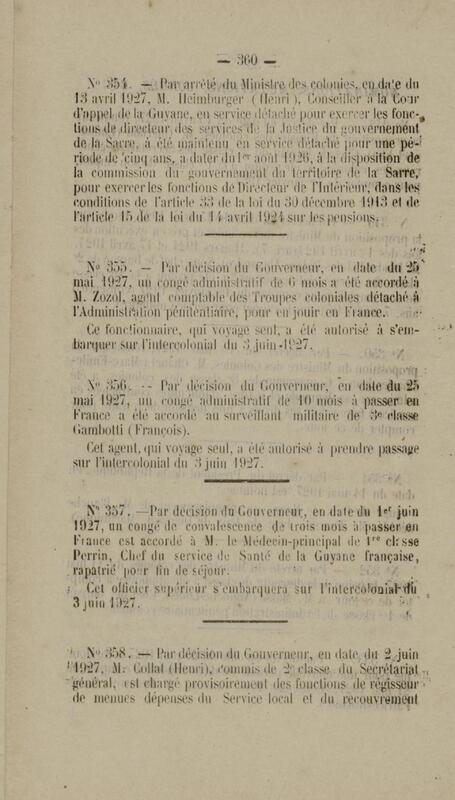 — 360 —
N° 354. — Par arrêté du Ministre des colonies, en date du
13 avril 1927, M. Heimburger (Henri), Conseiller à la Cour
d'appel de la Guyane, en service détaché pour exercer les fonc-
tions de directeur des services de la Justice du gouvernement
de la Sarre, a été maintenu en service détaché pour une pé-
riode de cinq ans, a dater du 1er août 1926, à la disposition de
la commission du gouvernement du territoire de la Sarre,
pour exercer les fonctions de Directeur de l'Intérieur, dans les
conditions de l'article 33 de la loi du 30 décembre 1913 et de
l'article 15 de la loi du 14 avril 1924 sur les pensions.
N° 355. — Par décision du Gouverneur, en date du 25
mai 1927, un congé administratif de 6 mois a été accordé à
M. Zozol, agent comptable des Troupes coloniales détaché à
l'Administration pénitentiaire, pour en jouir en France.
Ce fonctionnaire, qui voyage seul, a été autorisé à s'em-
barquer sur l'intercolonial du 3 juin 1927.
N° 356. -- Par décision du Gouverneur, en date du 25
mai 1927, un congé administratif de 10 mois à passer en
France a été accordé au surveillant militaire de 3e classe
Gambotti (François).
Cet agent, qui voyage seul, a été autorisé à prendre passage
sur l'intercolonial du 3 juin 1927.
N° 357. — Par décision du Gouverneur, en date du 1er juin
1927, un congé de convalescence de trois mois à passer en
France est accordé à M. le Médecin-principal de 1re classe
Perrin, Chef du service de Santé de la Guyane française,
rapatrié pour fin de séjour.
Cet officier supérieur s'embarquera sur l'intercolonial du
3 juin 1927.
N° 358. — Par décision du Gouverneur, en date du 2 juin
1927, M. Collat (Henri), commis de 2e classe du Secrétariat
général, est chargé provisoirement des fonctions de régisseur
de menues dépenses du Service local et du recouvrement